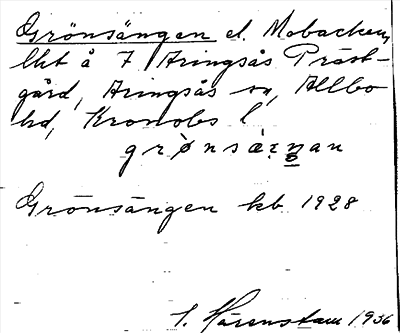 Grönsängen el. Mobacken,
lht å 7 Aringsås Präst-
gård, Aringsås sn, Allbo
hd, Kronobs l
grønsæŋan
Grönsängen kb 1928
S. Hårenstam 1936